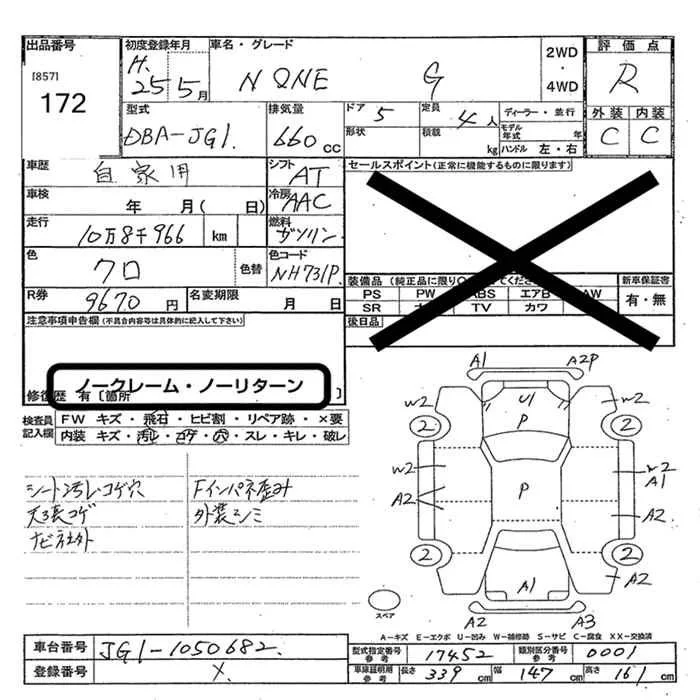 出品番号
[857]
172
初度登録年月
H. 25 5月
車名・グレード
N ONE G
2WD・4WD
評価点
R
型式
DBA-JG1.
排気量
660 cc
ドア 5
定員 4人
ディーラー・並行
形状
積載 kg
モデル年式 年
ハンドル 左・右
外装 内装
C C
車歴
自家用
シフト
AT
セールスポイント(正常に機能するものに限ります)
車検
年 月( 日)
冷房
AAC
走行
10万8千966 km
燃料
ガソリン
色
クロ
色替
色コード
NH731P.
装備品(純正品に限り
新車保証書
PS PW ABS エアB AW
SR TV カワ
有・無
R券
9670円
名変期限
月 日
後日品
注意事項申告欄(不具合内容等は具体的に記入して下さい)
ノークレーム・ノーリターン
修復歴 有〔箇所 〕
検査員記入欄
FW キズ・飛石・ヒビ割・リペア跡・×要
内装 キズ・汚レ・コゲ・穴・スレ・キレ・破レ
シート汚レコゲ穴
Fインパネ歪み
天張コゲ
外装シミ
ナビ社外
A1 A2P
W2 U1 W2
2 P 2
W2 W2
A1
P
A2 A2
2 2
A1 A2
A2 A3
スペア
A-キズ E-エクボ U-凹み W-補修跡 S-サビ C-腐食 XX-交換済
車台番号
JG1-1050682.
登録番号
X.
型式指定番号 参考
17452
類別区分番号 参考
0001
車庫証明用 参考
長さ 339 cm
幅 147 cm
高さ 161 cm